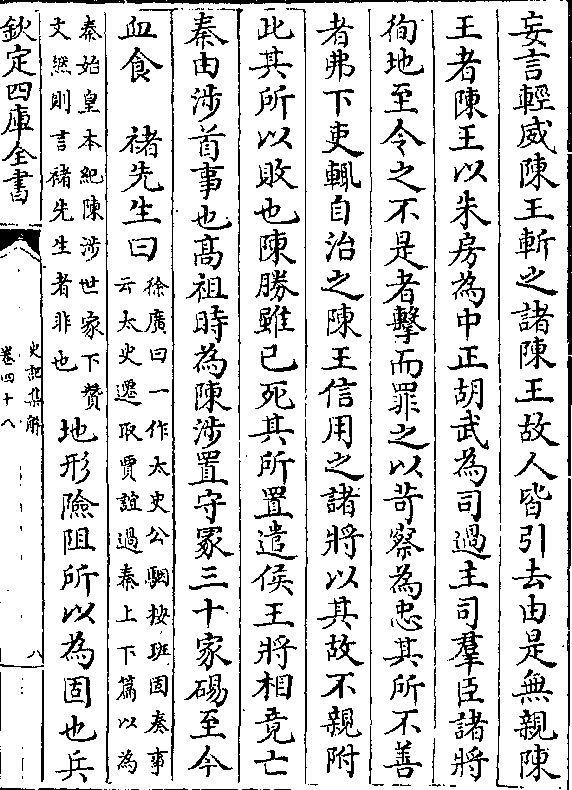 妄言輕威陳王斬之諸陳王故人皆引去由是無親陳
王者陳王以朱房為中正胡武為司過主司羣臣諸將
徇地至令之不是者擊而罪之以苛察為忠其所不善
者弗下吏輒自治之陳王信用之諸將以其故不親附
此其所以敗也陳勝雖已死其所置遣侯王將相竟亡
秦由涉首事也髙祖時為陳涉置守冢三十家碭至今
血食　褚先生曰
徐廣曰一作太史公駰按班固奏事
云太史遷取賈誼過秦上下篇以為
秦始皇本紀陳涉世家下賛
文然則言褚先生者非也
地形險阻所以為固也兵
欽定四庫全書
史記集解
卷四十八
八